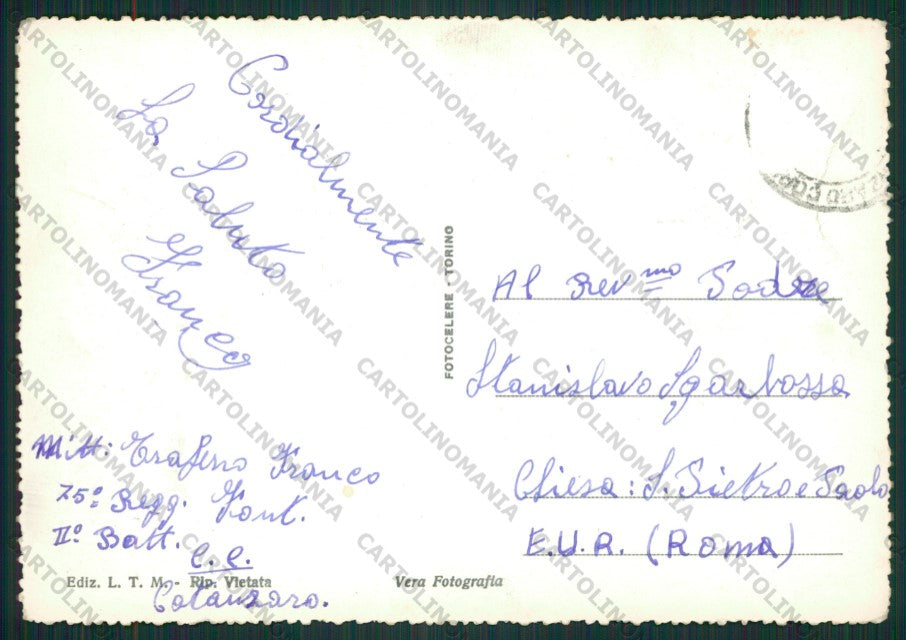 Cordialmente
La Saluto
Franco
Mitt: Trafieno Franco
75º Regg. Fant.
IIº Batt.
C.C.
Catanzaro.
Ediz. L. T. M. - Rip. Vietata
Vera Fotografia
FOTOCELERE - TORINO
Al Rev.mo Padre
Stanislavo Sgarbossa
Chiesa: S. Pietro e Paolo
E.U.R. (Roma)
CARTOLINOMANIA